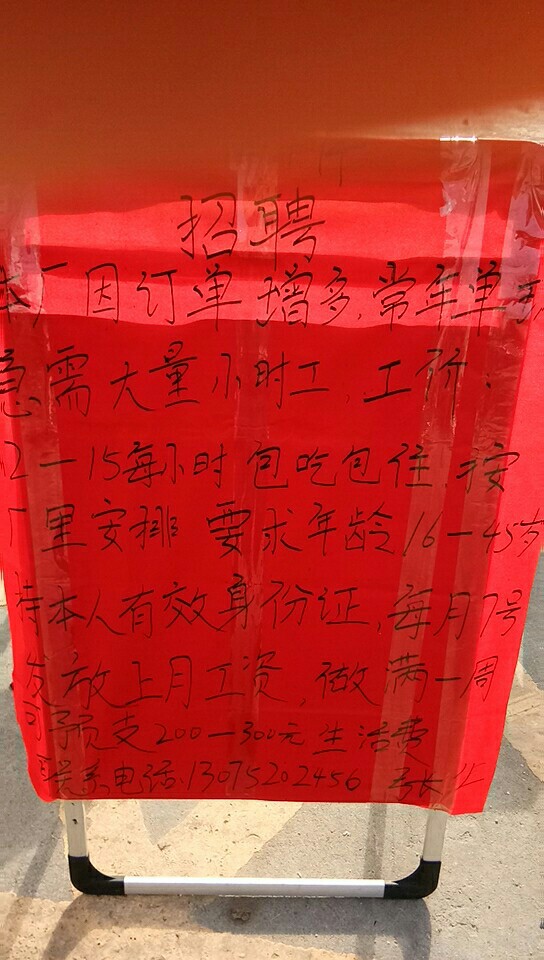 招聘
本厂因订单增多,常年单
急需大量小时工,工价:
2—15每小时 包吃包住,按
厂里安排 要求年龄16—45岁
持本人有效身份证,每月7号
发放上月工资,做满一周
可予预支200—300元生活费
联系电话:13075202456 张